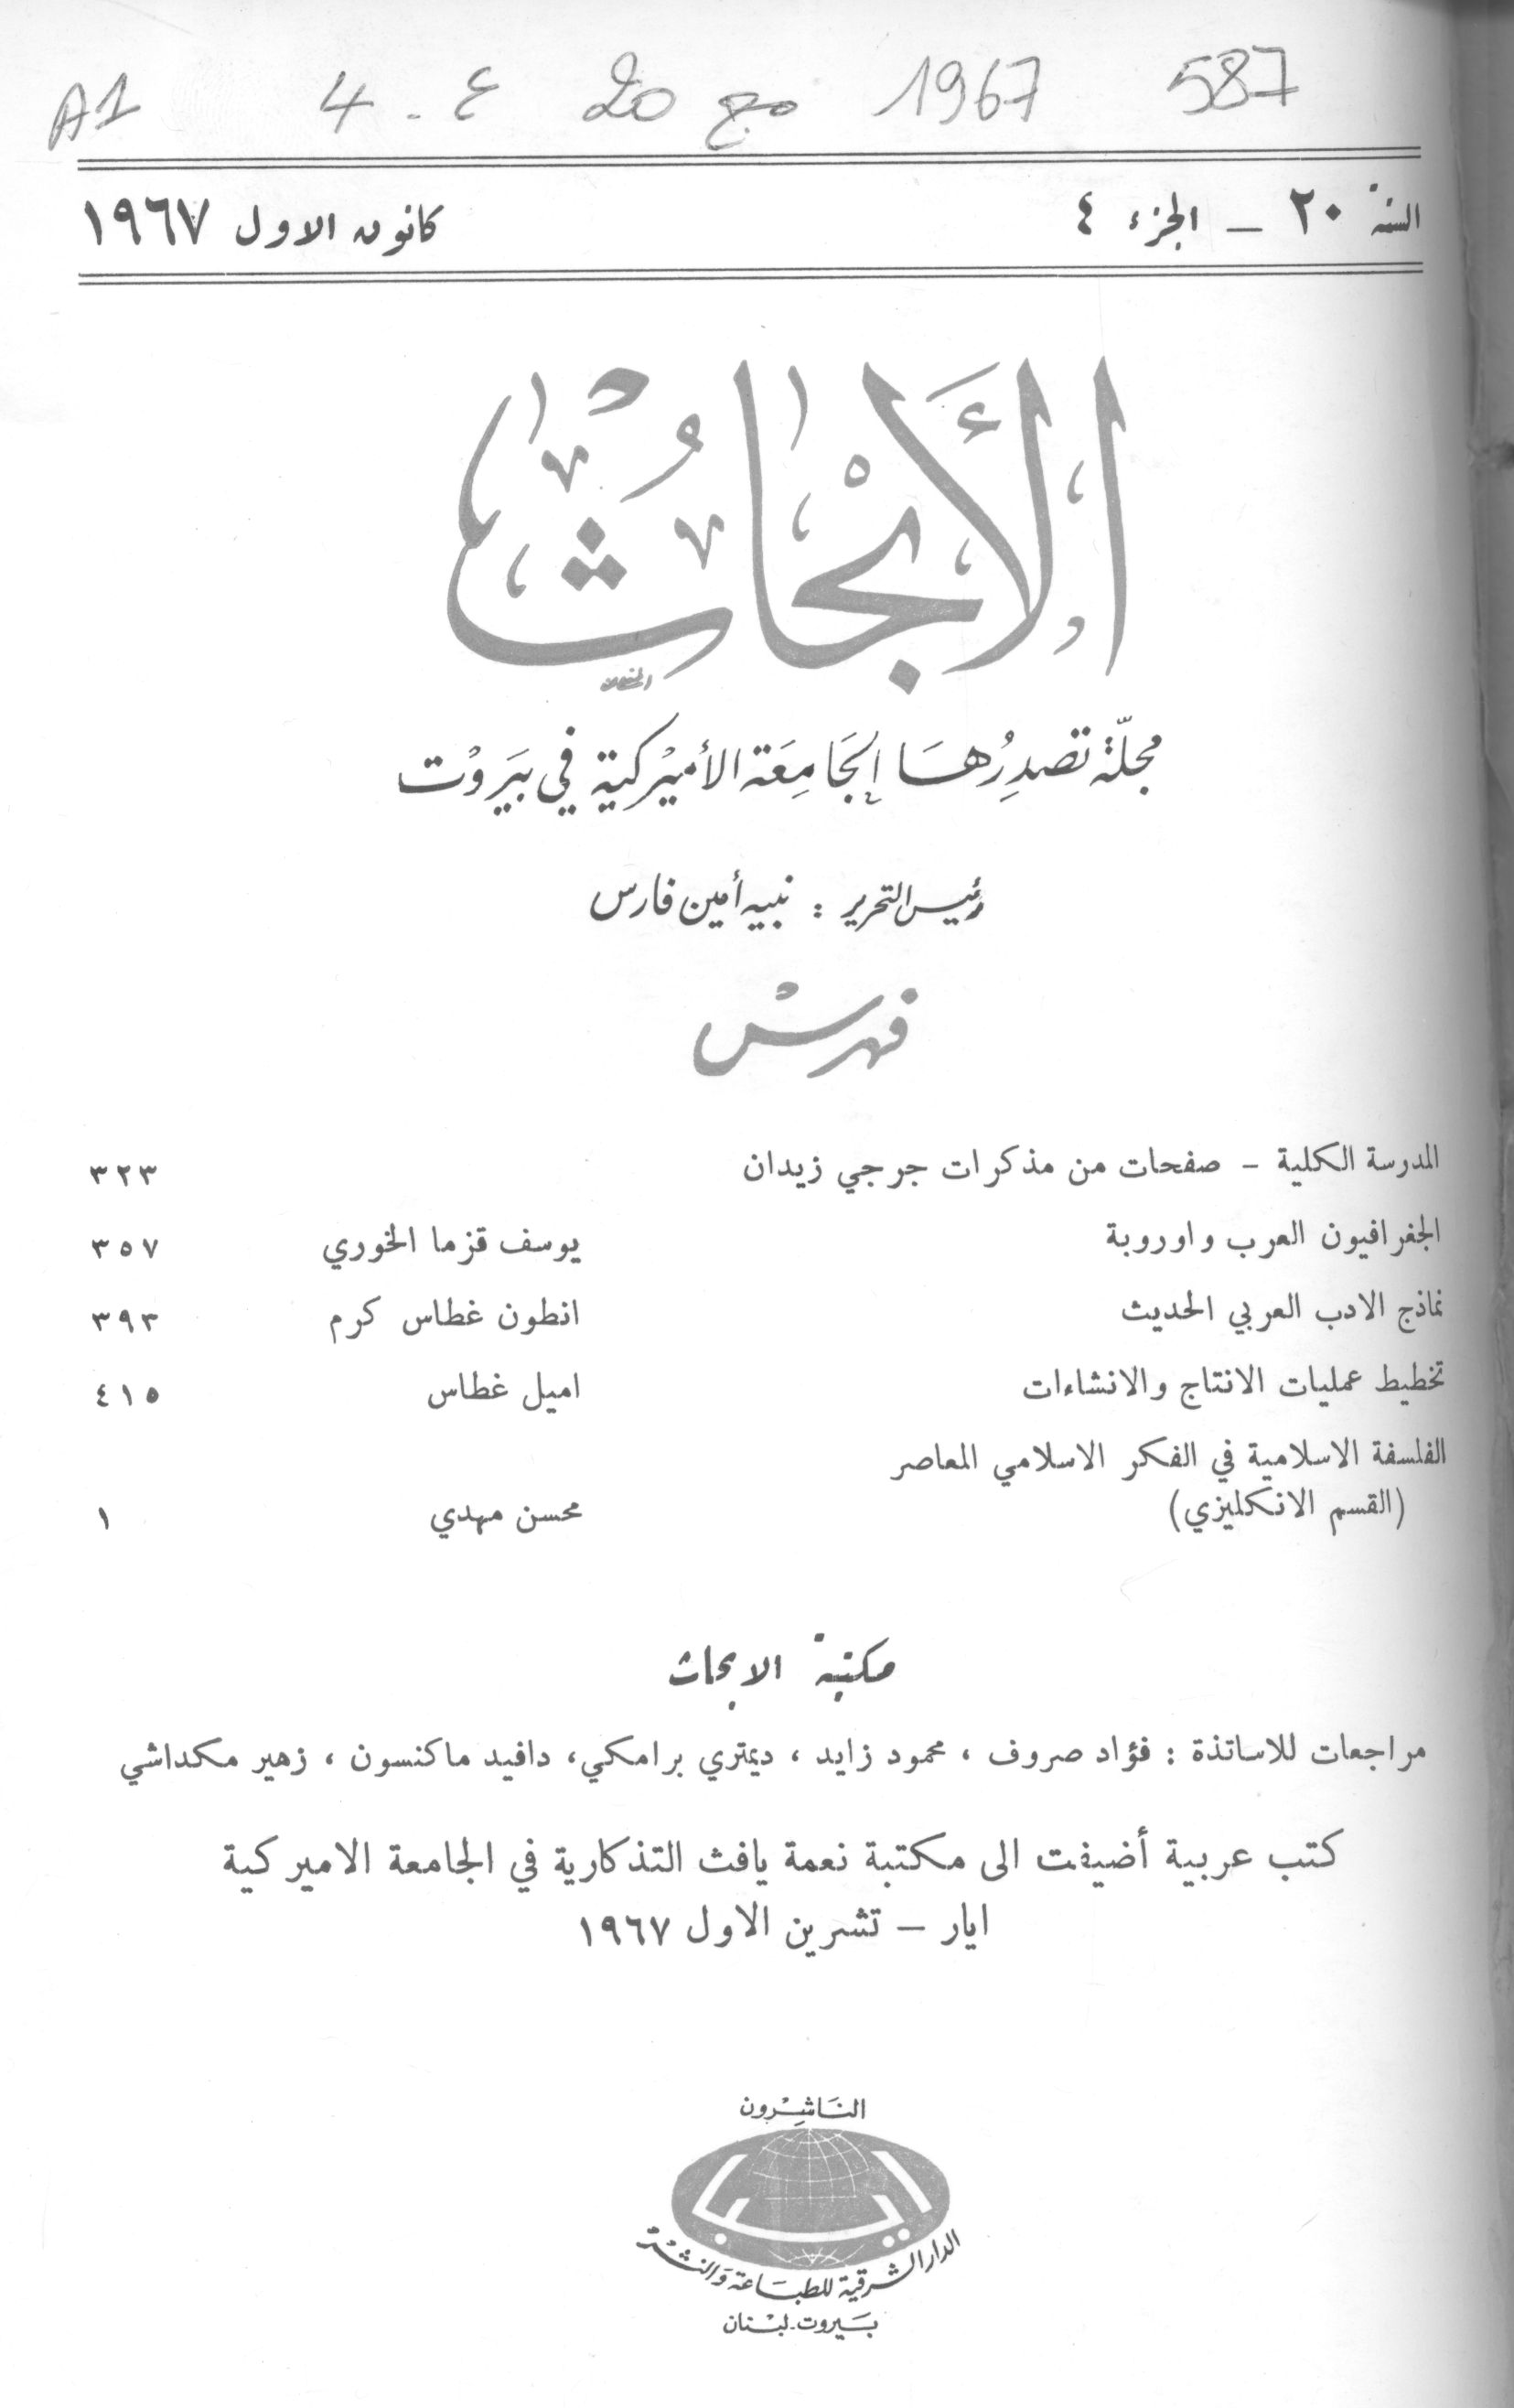 587 1967 مج 20 ع. 4 A1
السنة ٢٠ - الجزء ٤ كانون الاول ١٩٦٧
الأَبْحَاثُ
مجلّة تصدِرُهَا الجَامِعَة الأميْركية في بَيَروْت
رئيس التحرير : نبيه أمين فارس
فهرسْ
المدرسة الكلية - صفحات من مذكرات جرجي زيدان ٣٢٣
الجغرافيون العرب واوروبة يوسف قزما الخوري ٣٥٧
نماذج الادب العربي الحديث انطون غطاس كرم ٣٩٣
تخطيط عمليات الانتاج والانشاءات اميل غطاس ٤١٥
الفلسفة الاسلامية في الفكر الاسلامي المعاصر
(القسم الانكليزي) محسن مهدي ١
مكتبة الابحاث
مراجعات للاساتذة : فؤاد صروف ، محمود زايد ، ديمتري برامكي، دافيد ماكنسون ، زهير مكداشي
كتب عربية أضيفت الى مكتبة نعمة يافث التذكارية في الجامعة الاميركية
ايار - تشرين الاول ١٩٦٧
النَاشِرْون
الدار الشرقية للطبَاعة وَالنشْرْ
بَيروت - لبْنان